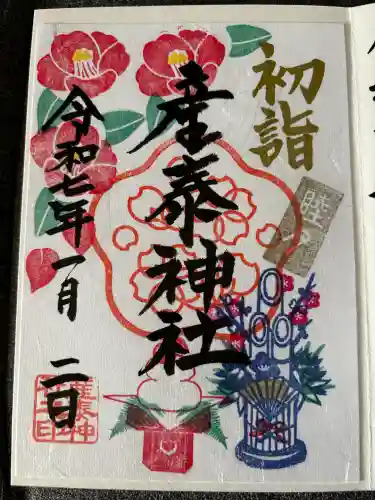 初詣
産泰神社
令和七年一月二日
睦月